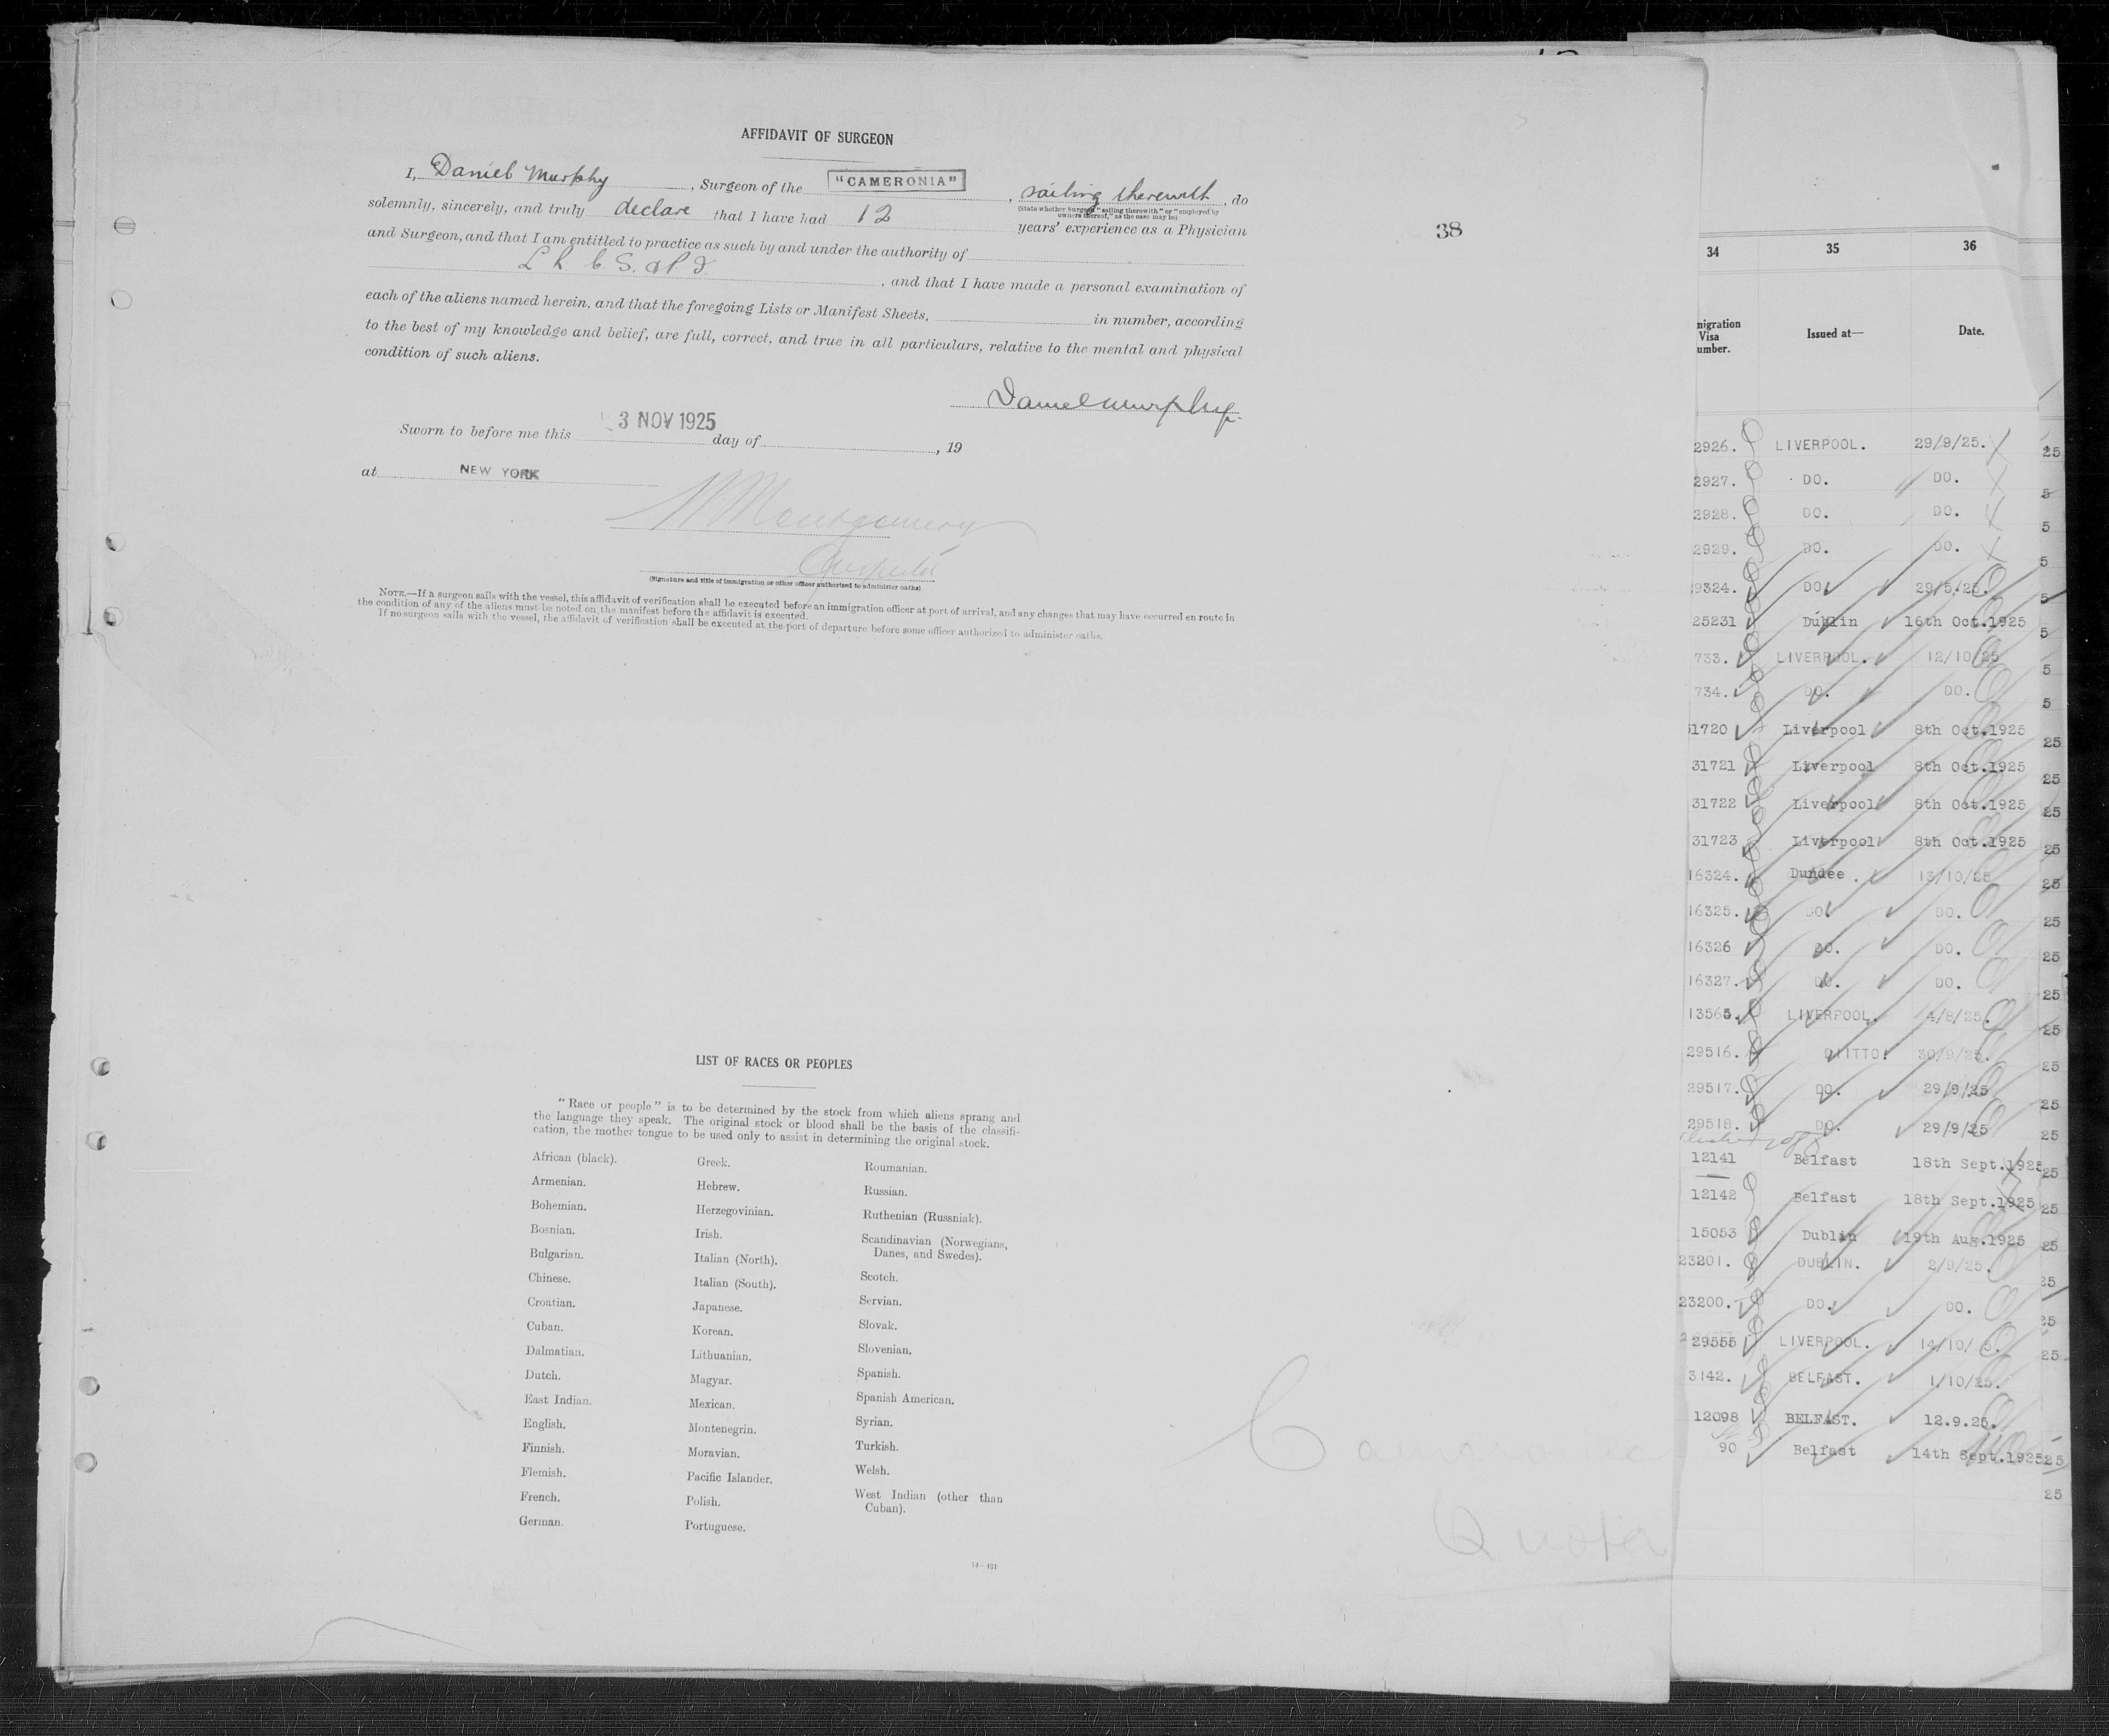 AFFIDAVIT OF SURGEON
I, Daniel Murphy, Surgeon of the "CAMERONIA", sailing therewith, do
(State whether Surgeon "sailing therewith" or "employed by
owners thereof," as the case may be)
solemnly, sincerely, and truly declare that I have had 12 years' experience as a Physician
and Surgeon, and that I am entitled to practice as such by and under the authority of
, and that I have made a personal examination of
each of the aliens named herein, and that the foregoing Lists or Manifest Sheets, in number, according
to the best of my knowledge and belief, are full, correct, and true in all particulars, relative to the mental and physical
condition of such aliens.
Daniel Murphy
Sworn to before me this 3 NOV 1925 day of , 19
at NEW YORK
Montgomery
(Signature and title of immigration or other officer authorized to administer oaths)
NOTE.—If a surgeon sails with the vessel, this affidavit of verification shall be executed before an immigration officer at port of arrival, and any changes that may have occurred en route in
the condition of any of the aliens must be noted on the manifest before the affidavit is executed.
If no surgeon sails with the vessel, the affidavit of verification shall be executed at the port of departure before some officer authorized to administer oaths.
38
LIST OF RACES OR PEOPLES
"Race or people" is to be determined by the stock from which aliens sprang and
the language they speak. The original stock or blood shall be the basis of the classifi-
cation, the mother tongue to be used only to assist in determining the original stock.
African (black).
Armenian.
Bohemian.
Bosnian.
Bulgarian.
Chinese.
Croatian.
Cuban.
Dalmatian.
Dutch.
East Indian.
English.
Finnish.
Flemish.
French.
German.
Greek.
Hebrew.
Herzegovinian.
Irish.
Italian (North).
Italian (South).
Japanese.
Korean.
Lithuanian.
Magyar.
Mexican.
Montenegrin.
Moravian.
Pacific Islander.
Polish.
Portuguese.
Roumanian.
Russian.
Ruthenian (Russniak).
Scandinavian (Norwegians,
Danes, and Swedes).
Scotch.
Servian.
Slovak.
Slovenian.
Spanish.
Spanish American.
Syrian.
Turkish.
Welsh.
West Indian (other than
Cuban).
Cameronia
Quota
34 35 36
migration
Visa
umber.
Issued at—
Date.
2926. LIVERPOOL. 29/9/25.
2927. DO. DO.
2928. DO. DO.
2929. DO. DO.
9324. DO. 29/5/25.
25231 Dublin 16th Oct.1925
733. LIVERPOOL. 12/10/25
734. DO. DO.
31720 Liverpool 8th Oct.1925
31721 Liverpool 8th Oct.1925
31722 Liverpool 8th Oct.1925
31723 Liverpool 8th Oct.1925
16324. Dundee. 13/10/25
16325. DO. DO.
16326 DO. DO.
16327. DO. DO.
13565. LIVERPOOL. 4/8/25.
29516. DIITTO. 30/9/25.
29517. DO. 29/9/25
29518. DO. 29/9/25
12141 Belfast 18th Sept.1925
12142 Belfast 18th Sept.1925
15053 Dublin 19th Aug.1925
23201. DUBLIN. 2/9/25.
23200. DO. DO.
29555 LIVERPOOL. 14/10/ 5.
3142. BELFAST. 1/10/25.
12098 BELFAST. 12.9.25.
90 Belfast 14th Sept.1925